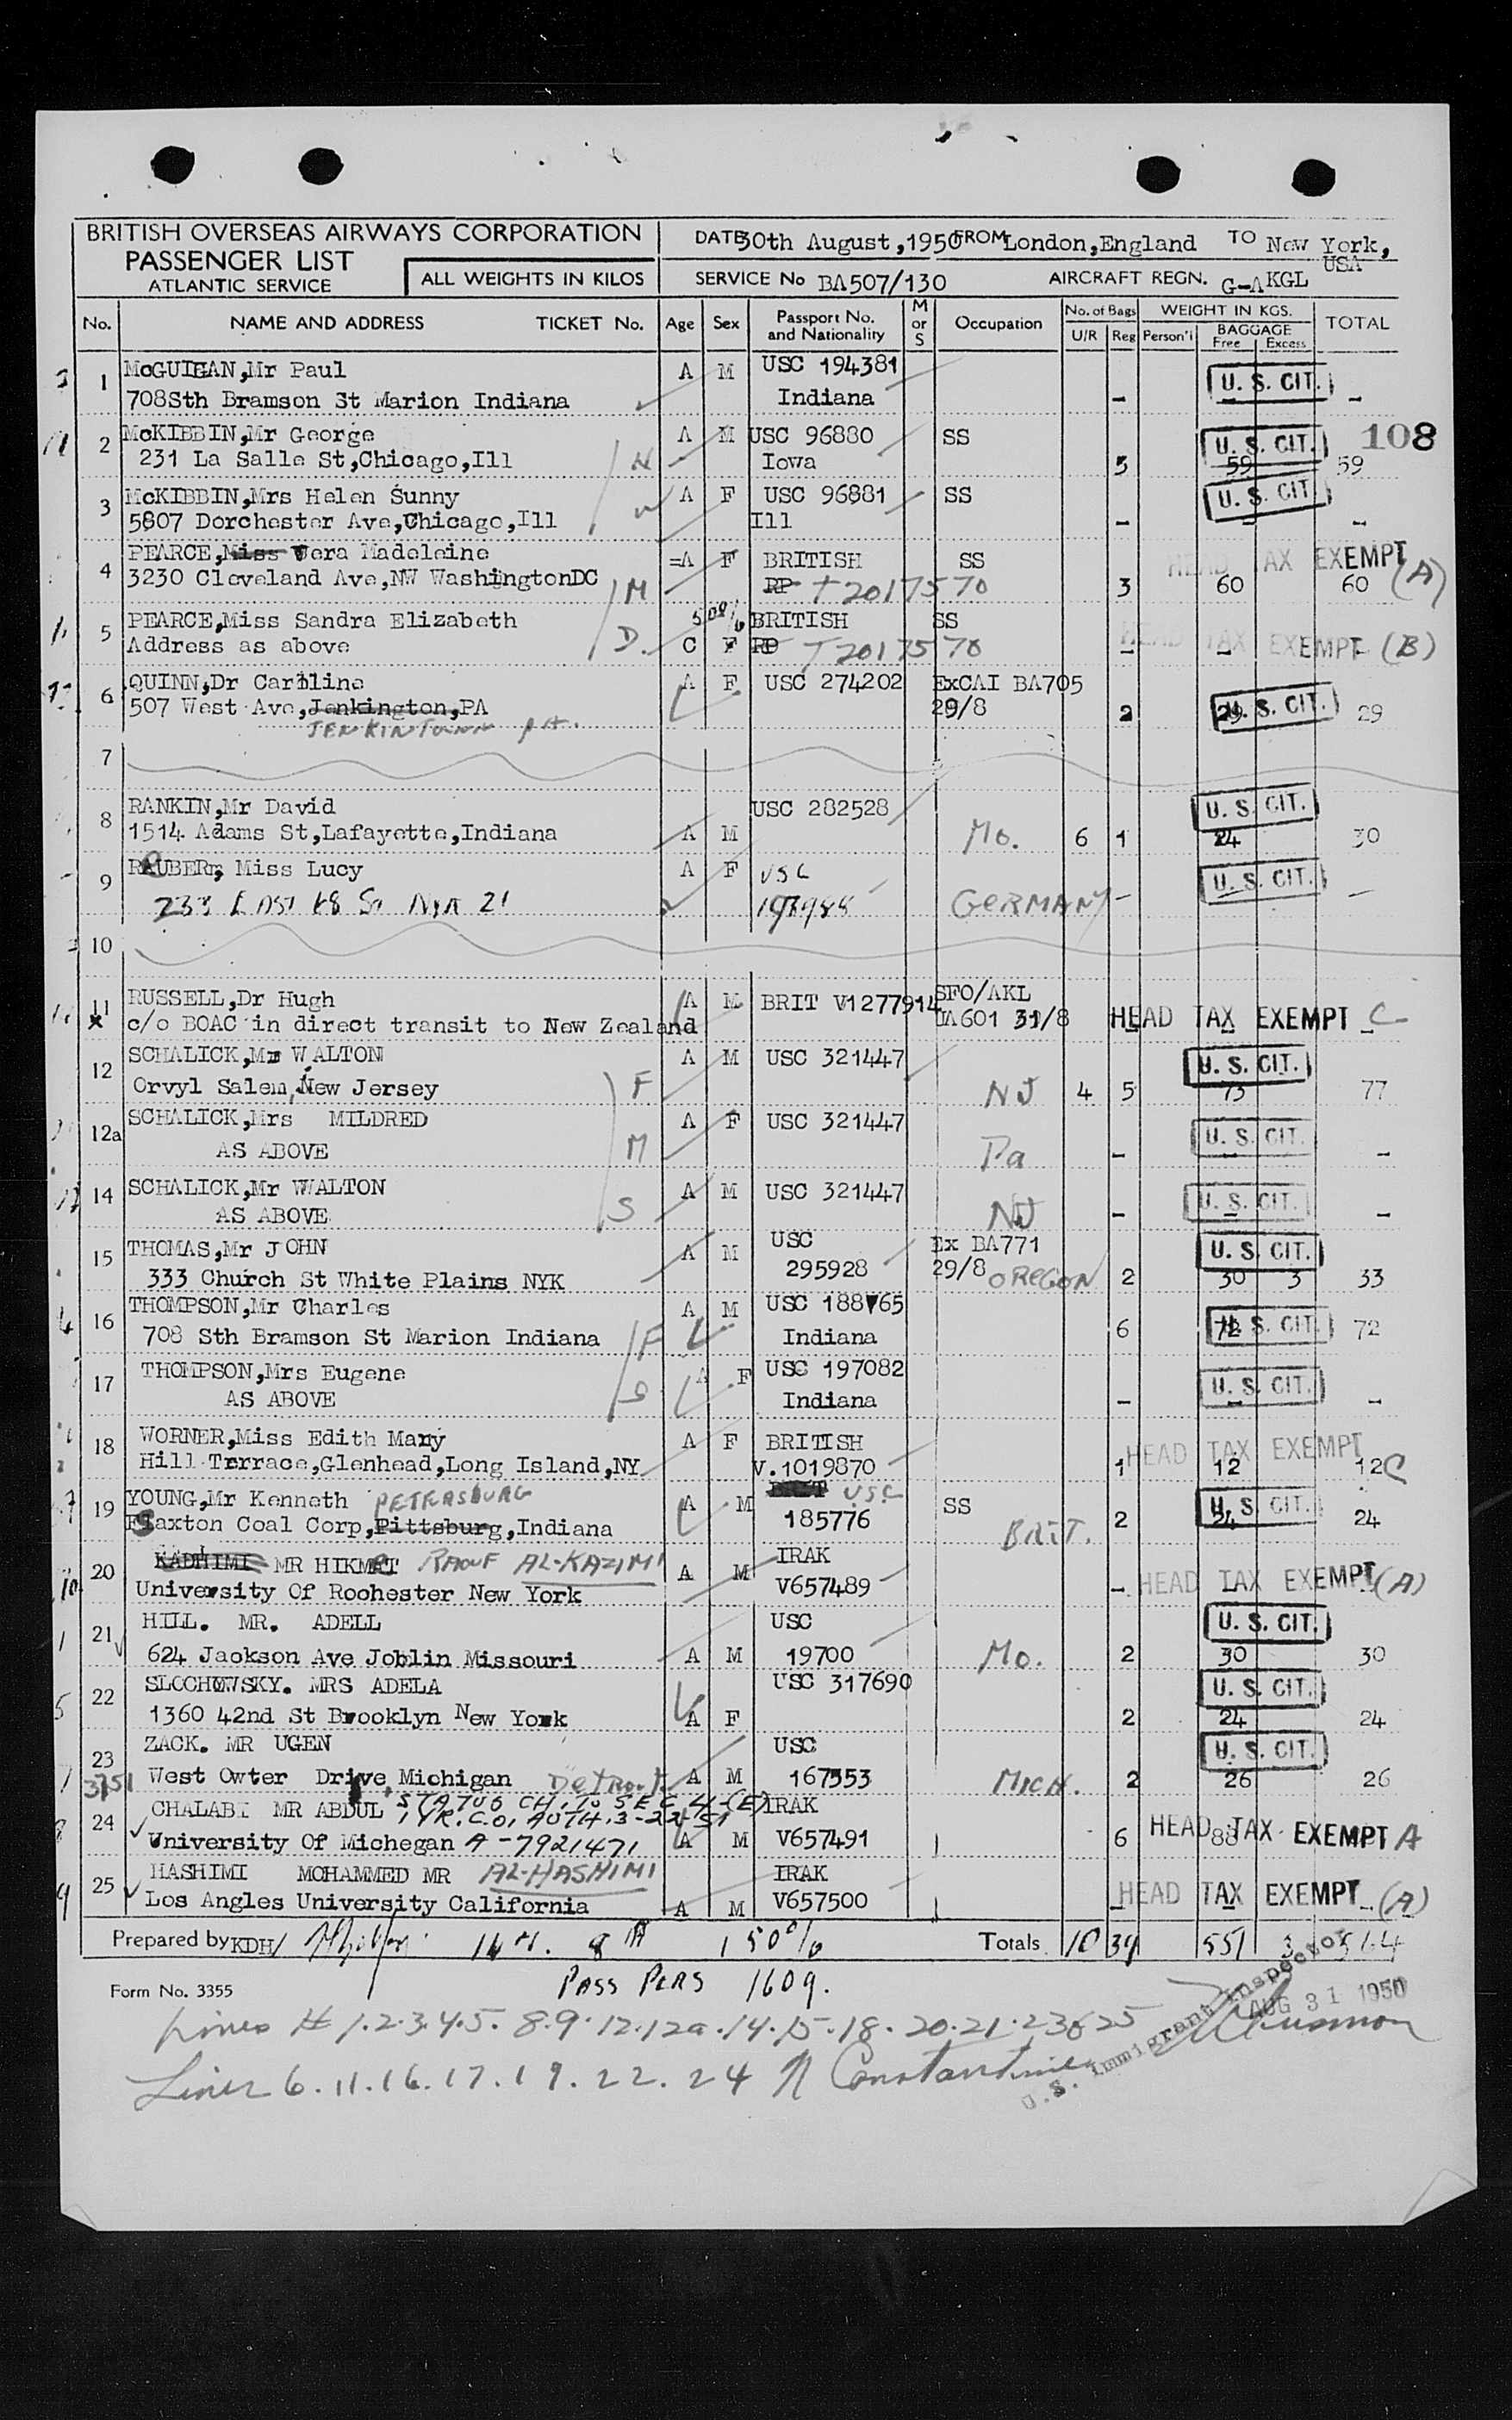 BRITISH OVERSEAS AIRWAYS CORPORATION
PASSENGER LIST
ATLANTIC SERVICE
ALL WEIGHTS IN KILOS
DATE 30th August,1950 FROM London,England TO New York, USA
SERVICE No BA507/130 AIRCRAFT REGN. G-AKGL
No. NAME AND ADDRESS TICKET No. Age Sex Passport No. and Nationality M or S Occupation No. of Bags U/R Reg WEIGHT IN KGS. Person'l BAGGAGE Free Excess TOTAL
1 McGUIGAN,Mr Paul A M USC 194381 U. S. CIT. -
708Sth Bramson St Marion Indiana Indiana -
108
2 McKIBBIN,Mr George A M USC 96880 SS U. S. CIT.
231 La Salle St,Chicago,Ill H Iowa 3 59 59
3 McKIBBIN,Mrs Helen Sunny W A F USC 96881 SS U. S. CIT
5807 Dorchester Ave,Chicago,Ill Ill - - -
4 PEARCE,Miss Vera Madeleine A F BRITISH SS HEAD TAX EXEMPT (A)
3230 Cleveland Ave,NW WashingtonDC M RP T2017570 3 60 60
5 PEARCE,Miss Sandra Elizabeth BRITISH SS
Address as above D. C F RP T2017570 - - HEAD TAX EXEMPT - (B)
6 QUINN,Dr Caroline A F USC 274202 ExCAI BA705
507 West Ave,Jenkington,PA 29/8 2 29 U. S. CIT. 29
JENKINTOWN PA.
7
8 RANKIN,Mr David USC 282528 U. S. CIT.
1514 Adams St,Lafayette,Indiana A M Mo. 6 1 24 30
9 RAUBERT, Miss Lucy A F USC U. S. CIT.
233 EAST 68 St NYK 21 GERMANY - -
10
11 RUSSELL,Dr Hugh A M BRIT V1277914 SFO/AKL
x c/o BOAC in direct transit to New Zealand UA601 31/8 HEAD TAX EXEMPT - C
12 SCHALICK,Mr WALTON A M USC 321447 U. S. CIT.
Orvyl Salem,New Jersey F NJ 4 5 73 77
12a SCHALICK,Mrs MILDRED A F USC 321447 U. S. CIT.
AS ABOVE M Pa - - -
14 SCHALICK,Mr WALTON A M USC 321447 U. S. CIT.
AS ABOVE S NJ - - -
15 THOMAS,Mr JOHN A M USC Ex BA771 U. S. CIT.
333 Church St White Plains NYK 295928 29/8 OREGON 2 30 3 33
16 THOMPSON,Mr Charles A M USC 188765
708 Sth Bramson St Marion Indiana F Indiana 6 72 U. S. CIT. 72
17 THOMPSON,Mrs Eugene A F USC 197082 U. S. CIT.
AS ABOVE S Indiana - - -
18 WORNER,Miss Edith Mary A F BRITISH HEAD TAX EXEMPT
Hill Terrace,Glenhead,Long Island,NY V.1019870 1 12 12 C
19 YOUNG,Mr Kenneth PETERSBURG A M USC SS U. S. CIT.
Flaxton Coal Corp,Pittsburg,Indiana 185776 BRIT. 2 24 24
20 KADHIMI MR HIKMAT RAOUF AL-KAZIMI A M IRAK
University Of Rochester New York V657489 - HEAD TAX EXEMPT (A)
21 HILL. MR. ADELL USC U. S. CIT.
624 Jackson Ave Joblin Missouri A M 19700 Mo. 2 30 30
22 SLOCHOWSKY. MRS ADELA USC 317690 U. S. CIT.
1360 42nd St Brooklyn New York A F 2 24 24
23 ZACK. MR UGEN USC U. S. CIT.
3751 West Owter Drive Michigan DETROIT A M 167353 MICH. 2 26 26
STATUS CH. TO SEC 4-(E)
24 CHALABI MR ABDUL C.O. AUTH. 3-22-51 IRAK
University Of Michegan A-7921471 A M V657491 6 HEAD TAX EXEMPT A
25 HASHIMI MOHAMMED MR AL-HASHIMI IRAK
Los Angles University California A M V657500 - HEAD TAX EXEMPT (A)
Prepared by KDH/ 16 M. 8 1 50% Totals 10 39 551 3 564
Form No. 3355
PASS PERS 1609.
AUG 31 1950
U.S. Immigrant Inspector
Lines # 1.2.3.4.5. 8.9.12.12a.14.15.18.20.21.23&25
Lines 6.11.16.17.19.22.24 N Constantine